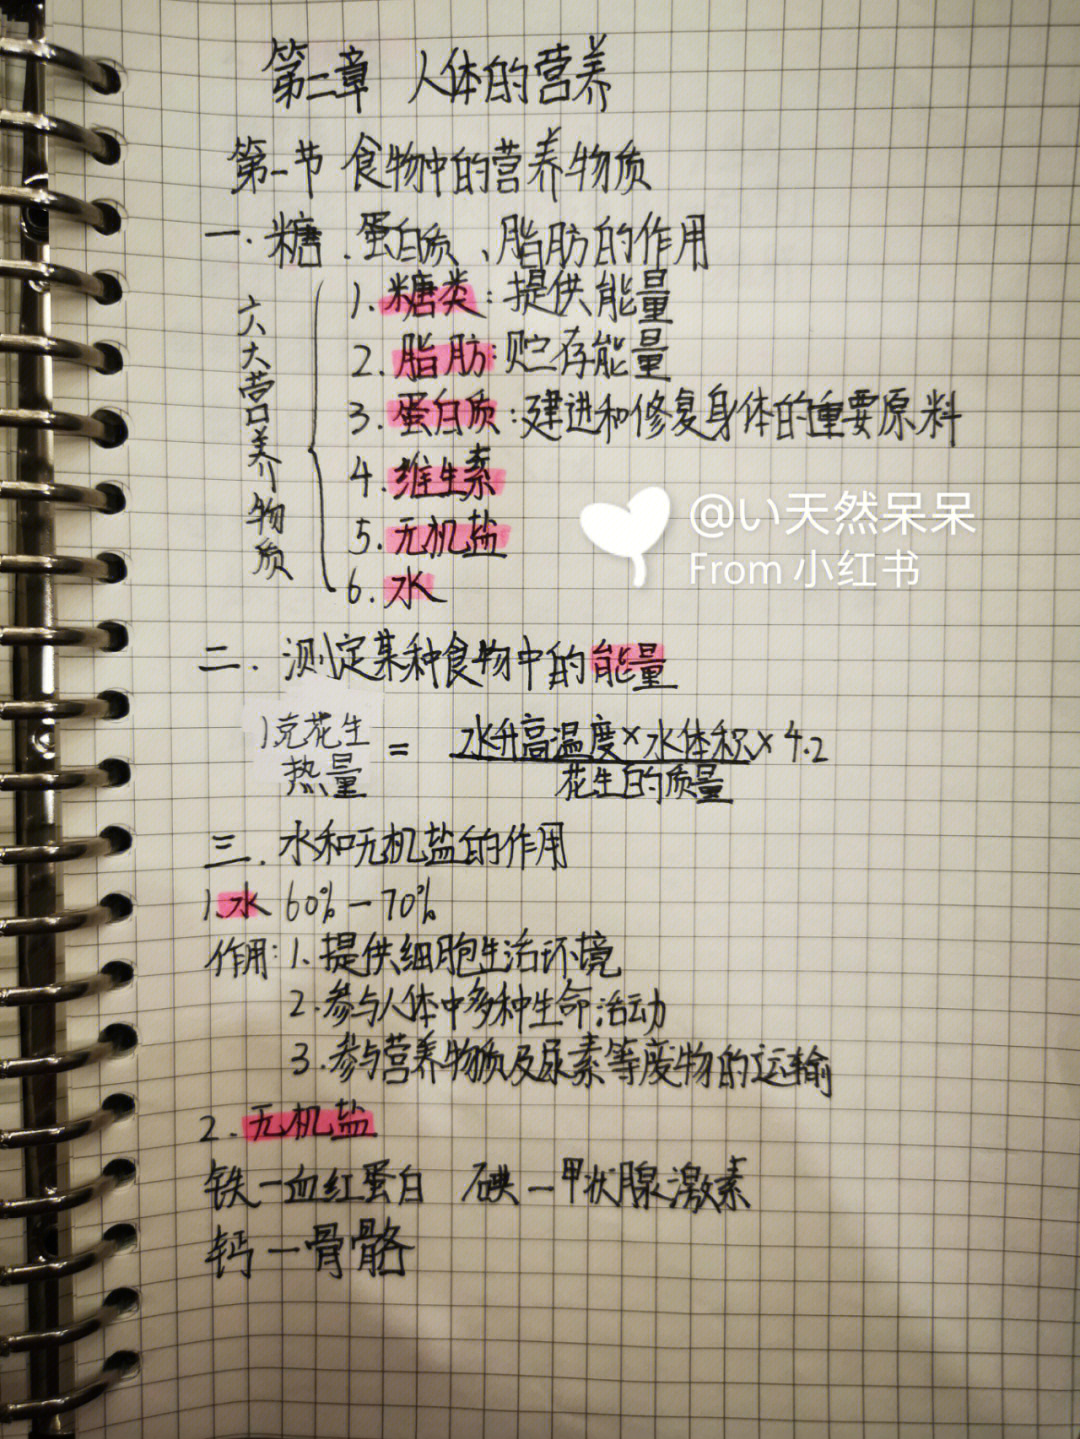 第二章 人体的营养
第一节 食物中的营养物质
一.糖、蛋白质、脂肪的作用
六大营养物质
1.糖类:提供能量
2.脂肪:贮存能量
3.蛋白质:建进和修复身体的重要原料
4.维生素
5.无机盐
6.水
@い天然呆呆
From 小红书
二.测定某种食物中的能量
1克花生热量 = 水升高温度×水体积×4.2
花生的质量
三.水和无机盐的作用
1.水 60%-70%
作用:1.提供细胞生活环境
2.参与人体中多种生命活动
3.参与营养物质及尿素等废物的运输
2.无机盐
铁-血红蛋白 碘-甲状腺激素
钙-骨骼